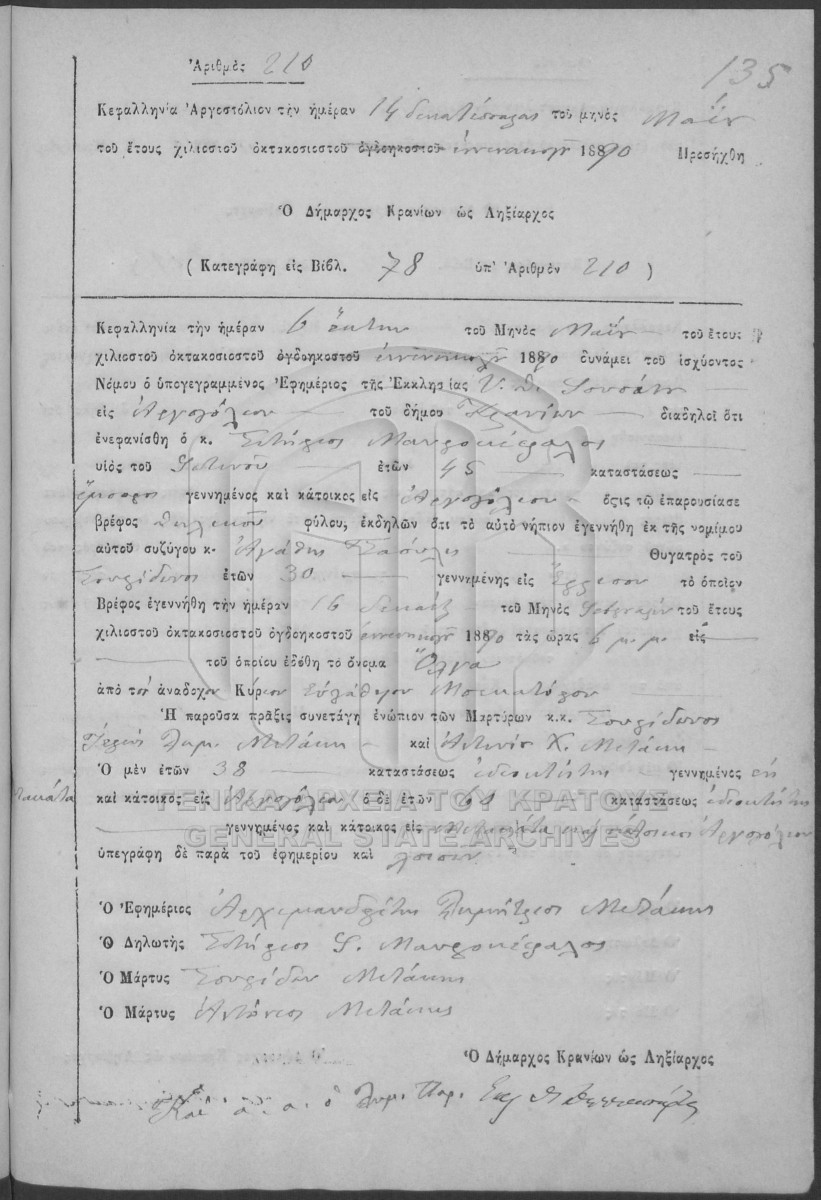 135
Ἀριθμὸς 210
Κεφαλληνία Ἀργοστόλιον τὴν ἡμέραν 14 δεκατέσσαρας τοῦ μηνὸς Μαΐου
τοῦ ἔτους χιλιοστοῦ ὀκτακοσιοστοῦ ὀγδοηκοστοῦ ἐννενηκοστοῦ 1890 Προσήχθη
Ὁ Δήμαρχος Κρανίων ὡς Ληξίαρχος
( Κατεγράφη εἰς Βιβλ. 78 ὑπ' Ἀριθμὸν 210 )
Κεφαλληνία τὴν ἡμέραν 6 ἕκτην τοῦ Μηνὸς Μαΐου τοῦ ἔτους
χιλιοστοῦ ὀκτακοσιοστοῦ ὀγδοηκοστοῦ ἐννενηκοστοῦ 1890 δυνάμει τοῦ ἰσχύοντος
Νόμου ὁ ὑπογεγραμμένος Ἐφημέριος τῆς Ἐκκλησίας
εἰς Ἀργοστόλιον τοῦ δήμου Κρανίων διαδηλοῖ ὅτι
ἐνεφανίσθη ὁ κ. Σωτήριος Μαυροκέφαλος
υἱὸς τοῦ Φωτεινοῦ ἐτῶν 45 καταστάσεως
ἔμπορος γεννημένος καὶ κάτοικος εἰς Ἀργοστόλιον ὅςις τῷ ἐπαρουσίασε
βρέφος θηλυκοῦ φύλου, ἐκδηλῶν ὅτι τὸ αὐτὸ νήπιον ἐγεννήθη ἐκ τῆς νομίμου
αὐτοῦ συζύγου κ. Ἀγάθης Θυγατρὸς τοῦ
Σπυρίδωνος ἐτῶν 30 γεννημένης εἰς τὸ ὁποῖον
Βρέφος ἐγεννήθη τὴν ἡμέραν 16 δεκαέξ τοῦ Μηνὸς Φεβρουαρίου τοῦ ἔτους
χιλιοστοῦ ὀκτακοσιοστοῦ ὀγδοηκοστοῦ ἐννενηκοστοῦ 1890 τὰς ὥρας 6 μ. μ. εἰς
τοῦ ὁποίου ἐδόθη τὸ ὄνομα Ὄλγα
ἀπὸ τὸν ἀνάδοχον Κύριον Μοσκατόλον
Ἡ παροῦσα πρᾶξις συνετάγη ἐνώπιον τῶν Μαρτύρων κ.κ. Σπυρίδωνος
Ἱερέως Δημ. Μεταξᾶ καὶ Ἀντωνίου Χ. Μεταξᾶ
Ὁ μὲν ἐτῶν 38 καταστάσεως ἰδιοκτήτης γεννημένος
καὶ κάτοικος εἰς Ἀργοστόλιον ὁ δὲ ἐτῶν καταστάσεως ἰδιοκτήτης
γεννημένος καὶ κάτοικος εἰς κάτοικος Ἀργοστόλιον
ὑπεγράφη δὲ παρὰ τοῦ ἐφημερίου καὶ λοιπῶν
ΓΕΝΙΚΑ ΑΡΧΕΙΑ ΤΟΥ ΚΡΑΤΟΥΣ
GENERAL STATE ARCHIVES
Ὁ Ἐφημέριος Ἀρχιμανδρίτης Δημήτριος Μεταξᾶς
Ὁ Δηλωτὴς Σωτήριος Φ. Μαυροκέφαλος
Ὁ Μάρτυς Σπυρίδων Μεταξᾶς
Ὁ Μάρτυς Ἀντώνιος Μεταξᾶς
Ὁ Δήμαρχος Κρανίων ὡς Ληξίαρχος
ὁ Δημ. Παρ.